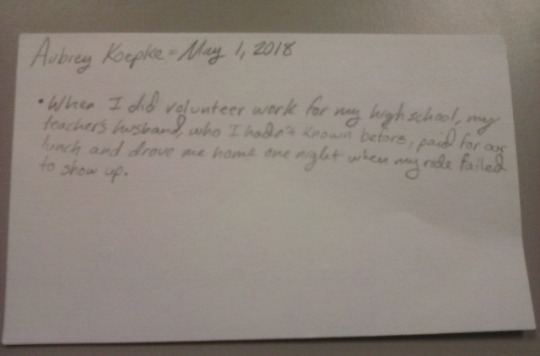 Aubrey Koepke = May 1, 2018
• When I did volunteer work for my high school, my
teacher's husband, who I hadn't known before, paid for our
lunch and drove me home one night when my ride failed
to show up.